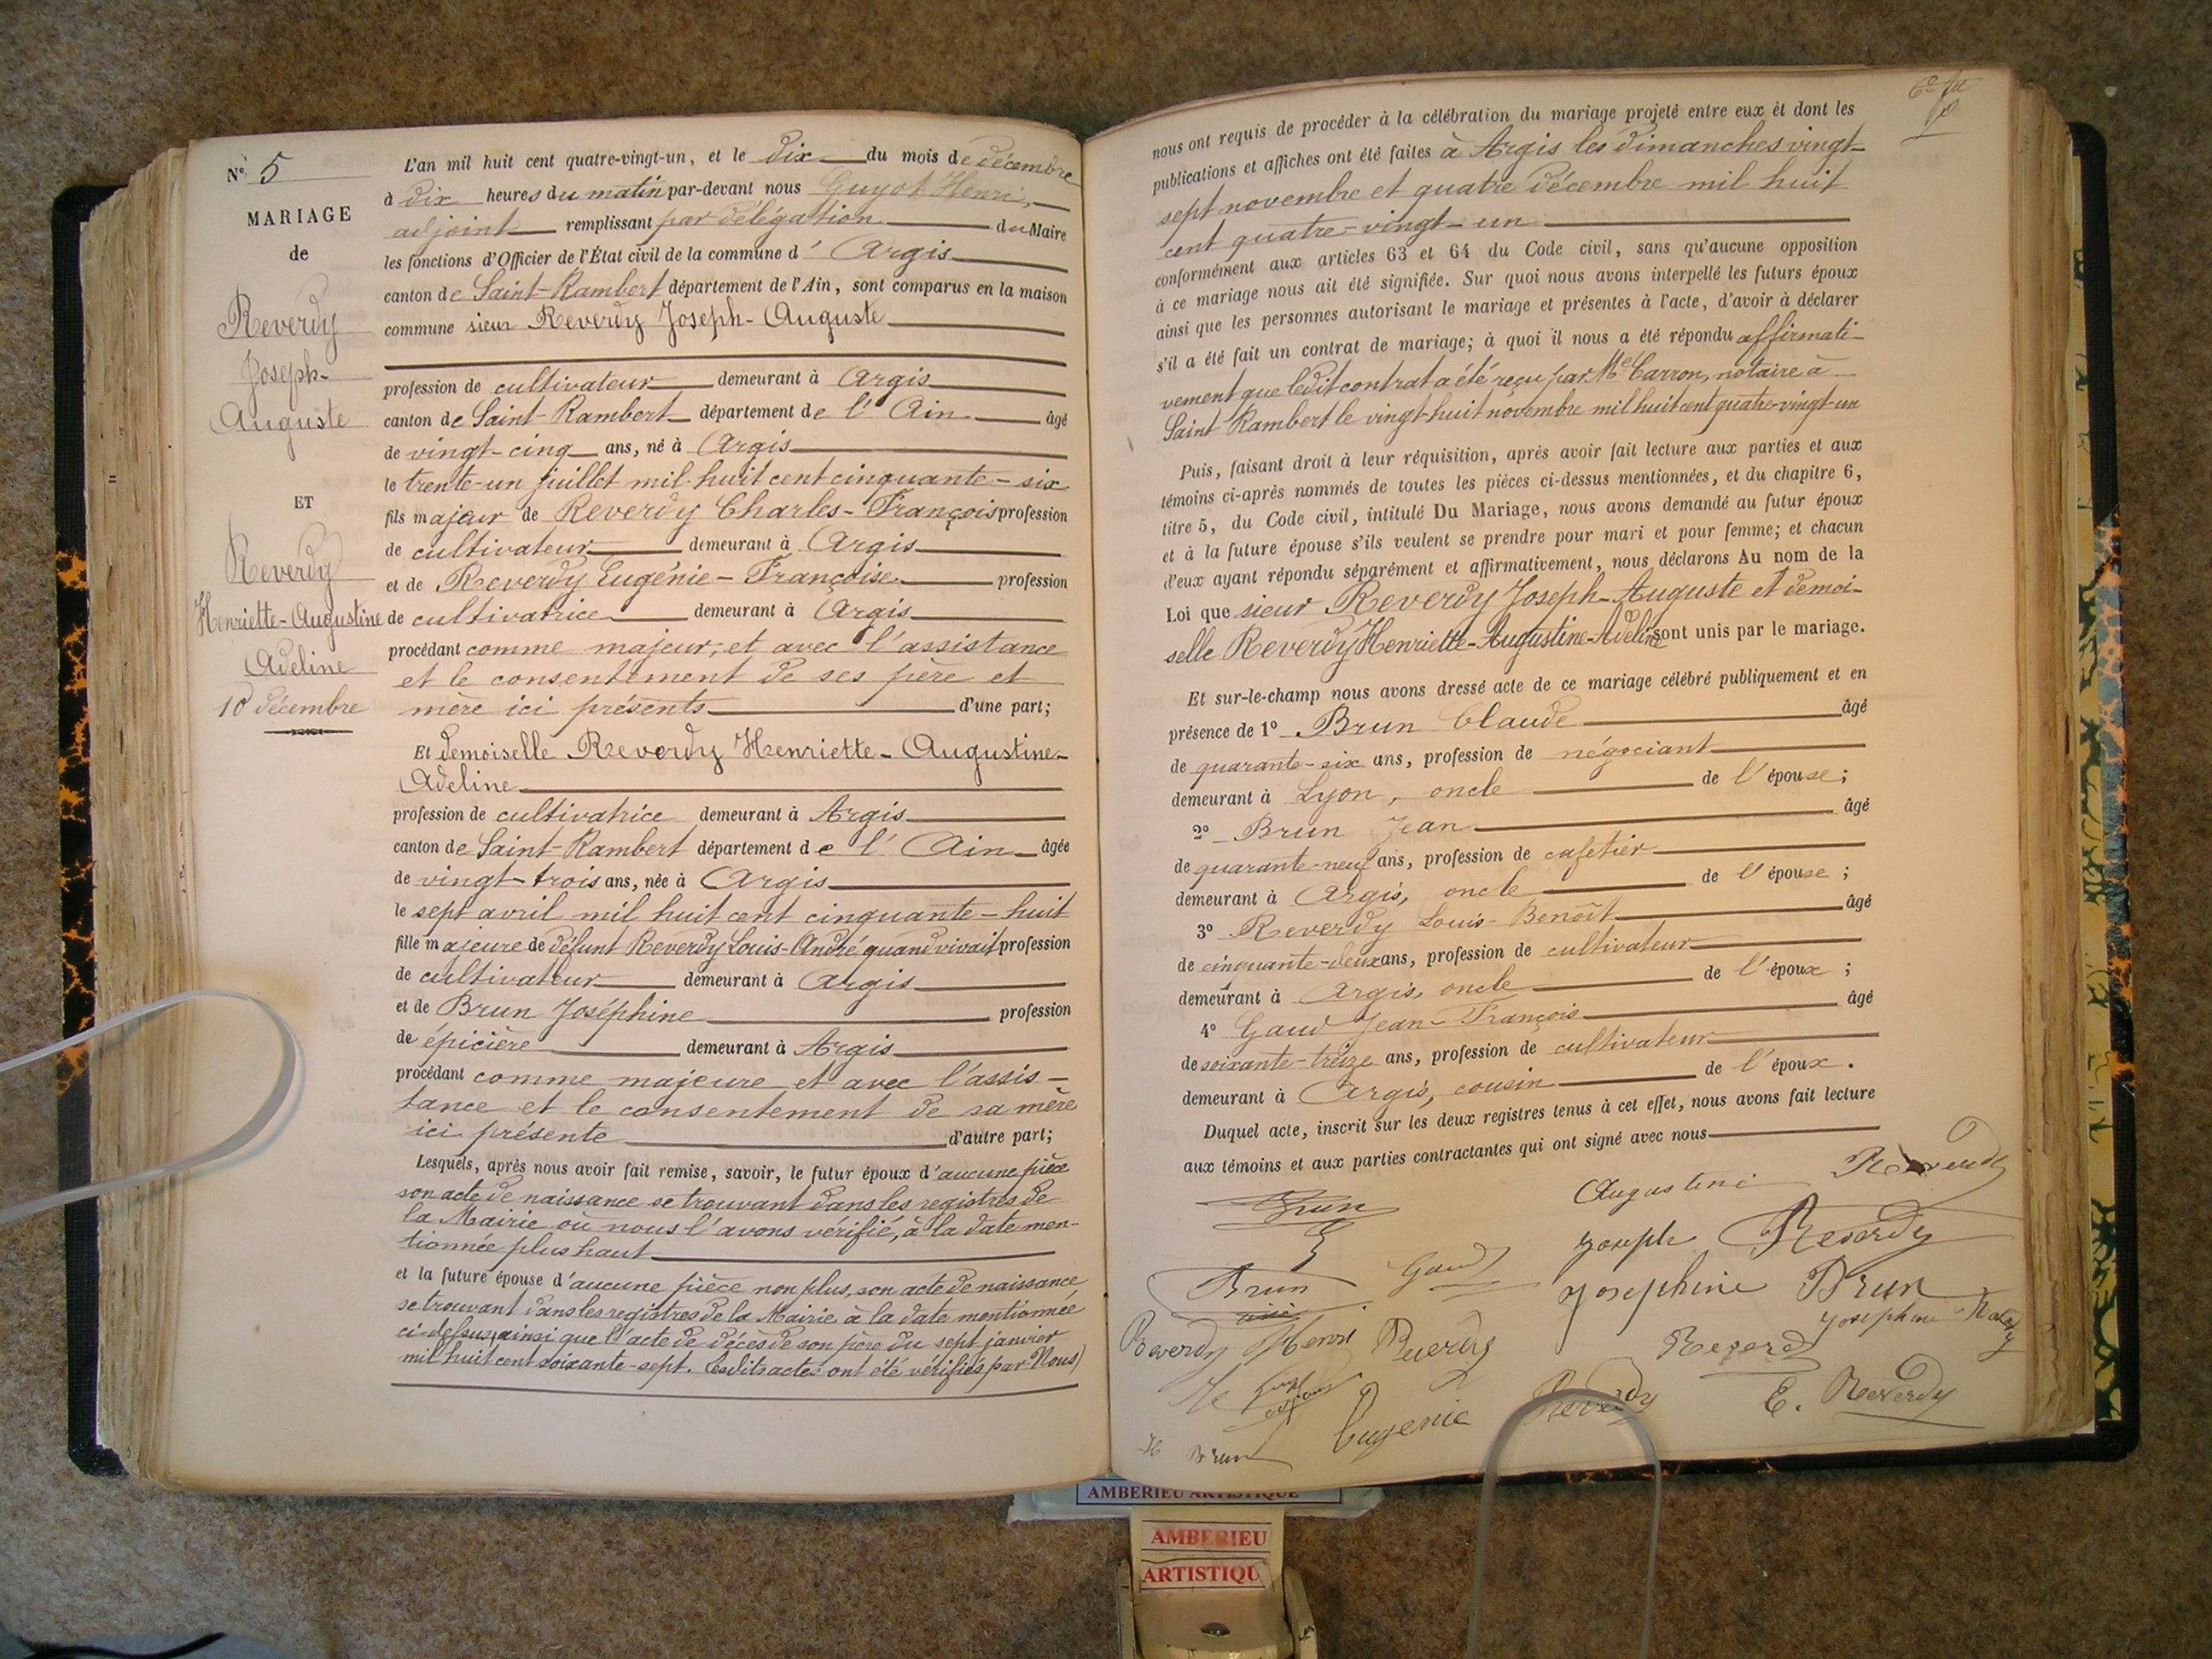 N° 5
MARIAGE
de
Reverdy
Joseph-
Auguste
ET
Reverdy
Henriette-Augustine
Adeline
10 décembre
L'an mil huit cent quatre-vingt-un, et le dix du mois de décembre
à dix heures du matin par-devant nous Guyot Henri,
adjoint remplissant par délégation du Maire
les fonctions d'Officier de l'État civil de la commune d' Argis
canton de Saint-Rambert département de l'Ain, sont comparus en la maison
commune sieur Reverdy Joseph-Auguste
profession de cultivateur demeurant à Argis
canton de Saint-Rambert département de l'Ain âgé
de vingt-cinq ans, né à Argis
le trente-un juillet mil huit cent cinquante-six
fils majeur de Reverdy Charles-François profession
de cultivateur demeurant à Argis
et de Reverdy Eugénie-Françoise profession
de cultivatrice demeurant à Argis
procédant comme majeur, et avec l'assistance
et le consentement de ses père et
mère ici présents d'une part;
Et demoiselle Reverdy Henriette-Augustine-
Adeline
profession de cultivatrice demeurant à Argis
canton de Saint-Rambert département de l'Ain âgée
de vingt-trois ans, née à Argis
le sept avril mil huit cent cinquante-huit
fille majeure de défunt Reverdy Louis-André quand vivait profession
de cultivateur demeurant à Argis
et de Brun Joséphine profession
de épicière demeurant à Argis
procédant comme majeure et avec l'assis-
tance et le consentement de sa mère
ici présente d'autre part;
Lesquels, après nous avoir fait remise, savoir, le futur époux d'aucune pièce
son acte de naissance se trouvant dans les registres de
la Mairie où nous l'avons vérifié, à la date men-
tionnée plus haut
et la future épouse d'aucune pièce non plus, son acte de naissance
se trouvant dans les registres de la Mairie à la date mentionnée
ci-dessus, ainsi que l'acte de décès de son père du sept janvier
mil huit cent soixante-sept. Lesdits actes ont été vérifiés par Nous)
nous ont requis de procéder à la célébration du mariage projeté entre eux et dont les
publications et affiches ont été faites à Argis les dimanches vingt-
sept novembre et quatre décembre mil huit
cent quatre-vingt-un
conformément aux articles 63 et 64 du Code civil, sans qu'aucune opposition
à ce mariage nous ait été signifiée. Sur quoi nous avons interpellé les futurs époux
ainsi que les personnes autorisant le mariage et présentes à l'acte, d'avoir à déclarer
s'il a été fait un contrat de mariage; à quoi il nous a été répondu affirmati-
vement que ledit contrat a été reçu par Me Carron, notaire à
Saint Rambert le vingt-huit novembre mil huit cent quatre-vingt-un
Puis, faisant droit à leur réquisition, après avoir fait lecture aux parties et aux
témoins ci-après nommés de toutes les pièces ci-dessus mentionnées, et du chapitre 6,
titre 5, du Code civil, intitulé Du Mariage, nous avons demandé au futur époux
et à la future épouse s'ils veulent se prendre pour mari et pour femme; et chacun
d'eux ayant répondu séparément et affirmativement, nous déclarons Au nom de la
Loi que sieur Reverdy Joseph-Auguste et demoi-
selle Reverdy Henriette-Augustine-Adeline sont unis par le mariage.
Et sur-le-champ nous avons dressé acte de ce mariage célébré publiquement et en
présence de 1° Brun Claude âgé
de quarante-six ans, profession de négociant
demeurant à Lyon, oncle de l'épouse;
2° Brun Jean âgé
de quarante-neuf ans, profession de cafetier
demeurant à Argis, oncle de l'épouse;
3° Reverdy Louis-Benoît âgé
de cinquante-deux ans, profession de cultivateur
demeurant à Argis, oncle de l'époux;
4° Gaud Jean-François âgé
de soixante-treize ans, profession de cultivateur
demeurant à Argis, cousin de l'époux.
Duquel acte, inscrit sur les deux registres tenus à cet effet, nous avons fait lecture
aux témoins et aux parties contractantes qui ont signé avec nous
Augustine Reverdy
Brun
Joseph Reverdy
Brun Gaud Josephine Brun
Josephine
Reverdy Henri Reverdy Reverdy
Eugenie Reverdy E. Reverdy
Brun
AMBERIEU ARTISTIQUE
AMBERIEU
ARTISTIQU